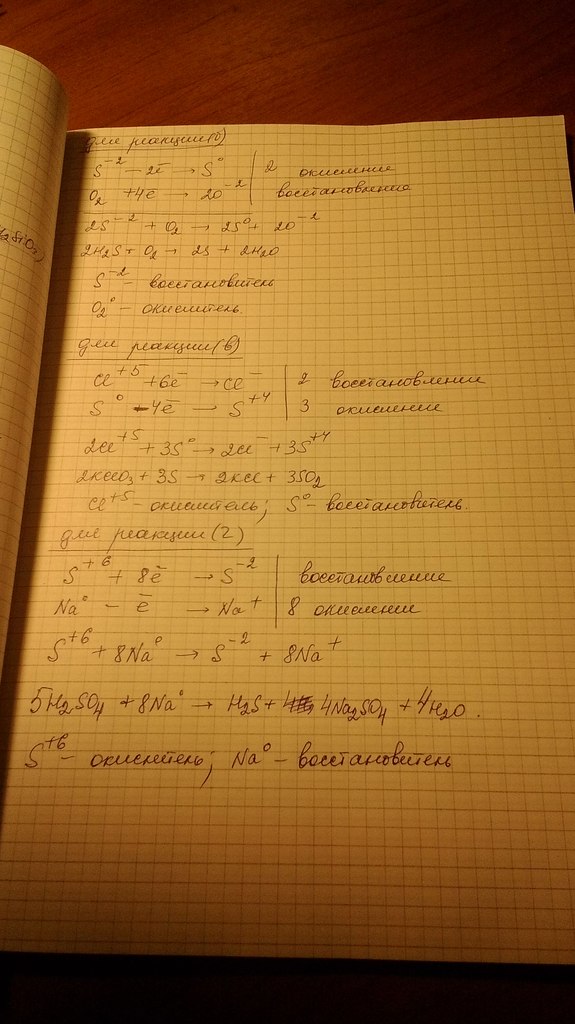 для реакции(б)
S⁻² − 2ē → S⁰ | 2 окисление
O₂ + 4ē → 2O⁻² | восстановление
2S⁻² + O₂ → 2S⁰ + 2O⁻²
2H₂S + O₂ → 2S + 2H₂O
S⁻² – восстановитель
O₂⁰ – окислитель.
для реакции(в)
Cl⁺⁵ + 6ē → Cl⁻ | 2 восстановление
S⁰ − 4ē → S⁺⁴ | 3 окисление
2Cl⁺⁵ + 3S⁰ → 2Cl⁻ + 3S⁺⁴
2KClO₃ + 3S → 2KCl + 3SO₂
Cl⁺⁵ – окислитель; S⁰ – восстановитель.
для реакции(г)
S⁺⁶ + 8ē → S⁻² | восстановление
Na⁰ − ē → Na⁺ | 8 окисление
S⁺⁶ + 8Na⁰ → S⁻² + 8Na⁺
5H₂SO₄ + 8Na⁰ → H₂S + 4Na₂SO₄ + 4H₂O.
S⁺⁶ – окислитель; Na⁰ – восстановитель